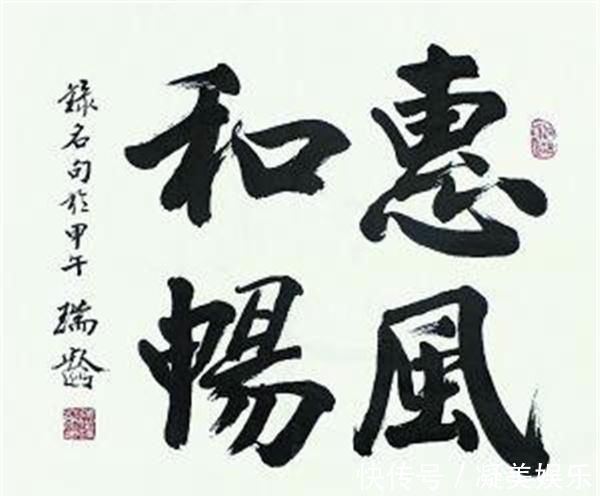 惠風
和暢
錄名句於甲午
瑞齡
快传号／凝美娱乐